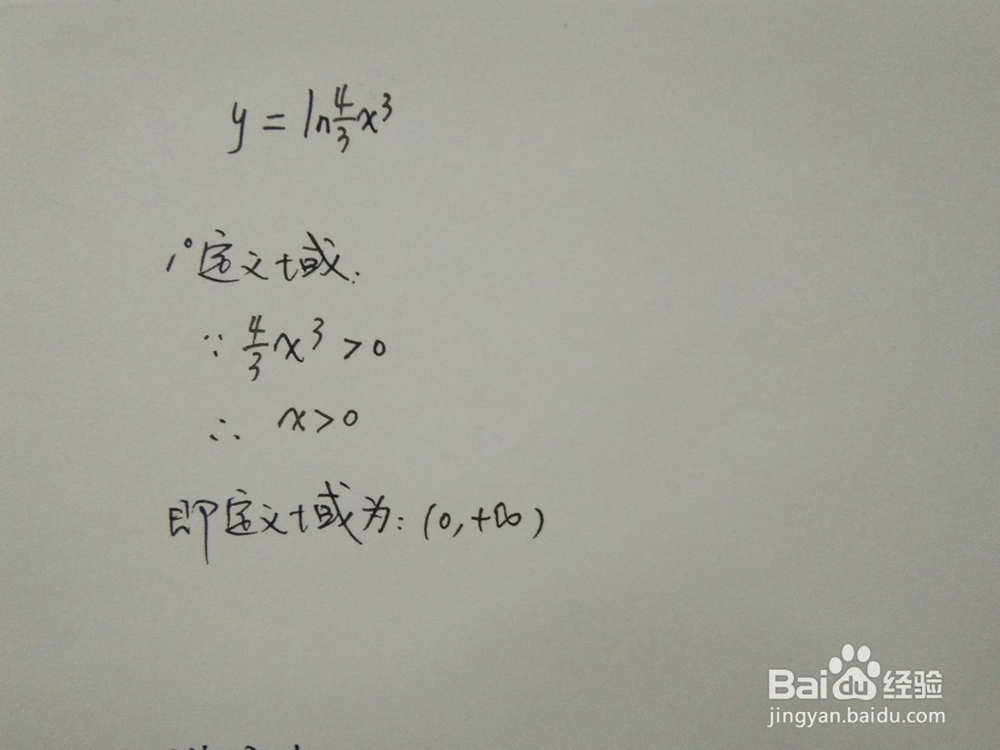 y = ln 4/3 x³
1° 定义域:
∵ 4/3 x³ > 0
∴ x > 0
即定义域为: (0, +∞)
Baidu 经验
jingyan.baidu.com